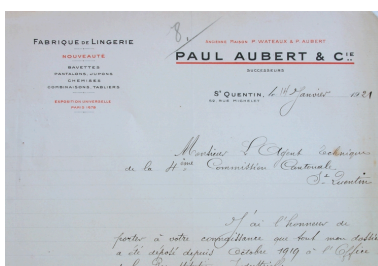 8.
FABRIQUE DE LINGERIE
NOUVEAUTÉ
BAVETTES
PANTALONS, JUPONS
CHEMISES
COMBINAISONS, TABLIERS
EXPOSITION UNIVERSELLE
PARIS 1878
Ancienne Maison P. WATEAUX & P. AUBERT
PAUL AUBERT & CIE
SUCCESSEURS
ST QUENTIN, le 14 Janvier 1921
RUE MICHELET
Monsieur L'Agent technique
de la 4ème Commission Cantonale
St Quentin
J'ai l'honneur de
porter à votre connaissance que tout mon dossier
a été déposé depuis Octobre 1919 à l'Office